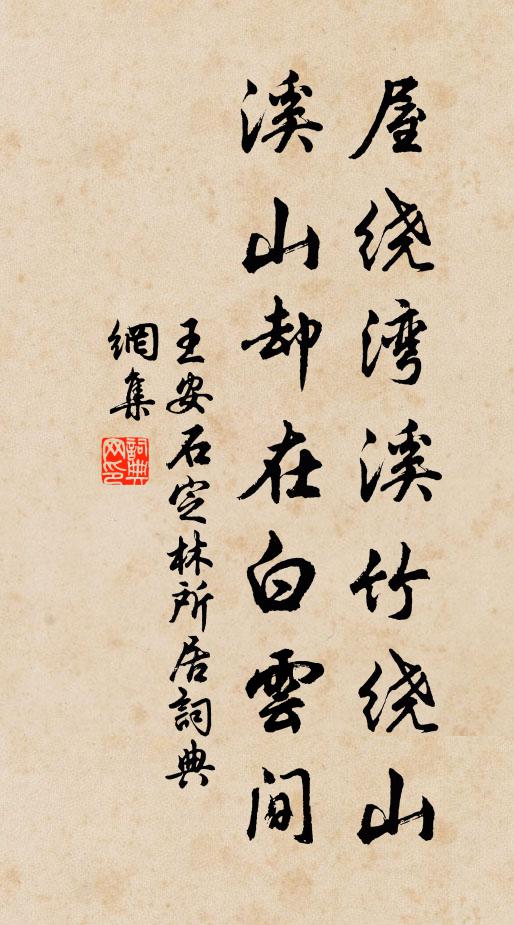 屋绕湾溪竹绕山
溪山却在白雲间
王安石定林所居詞典
網集
詞典網印